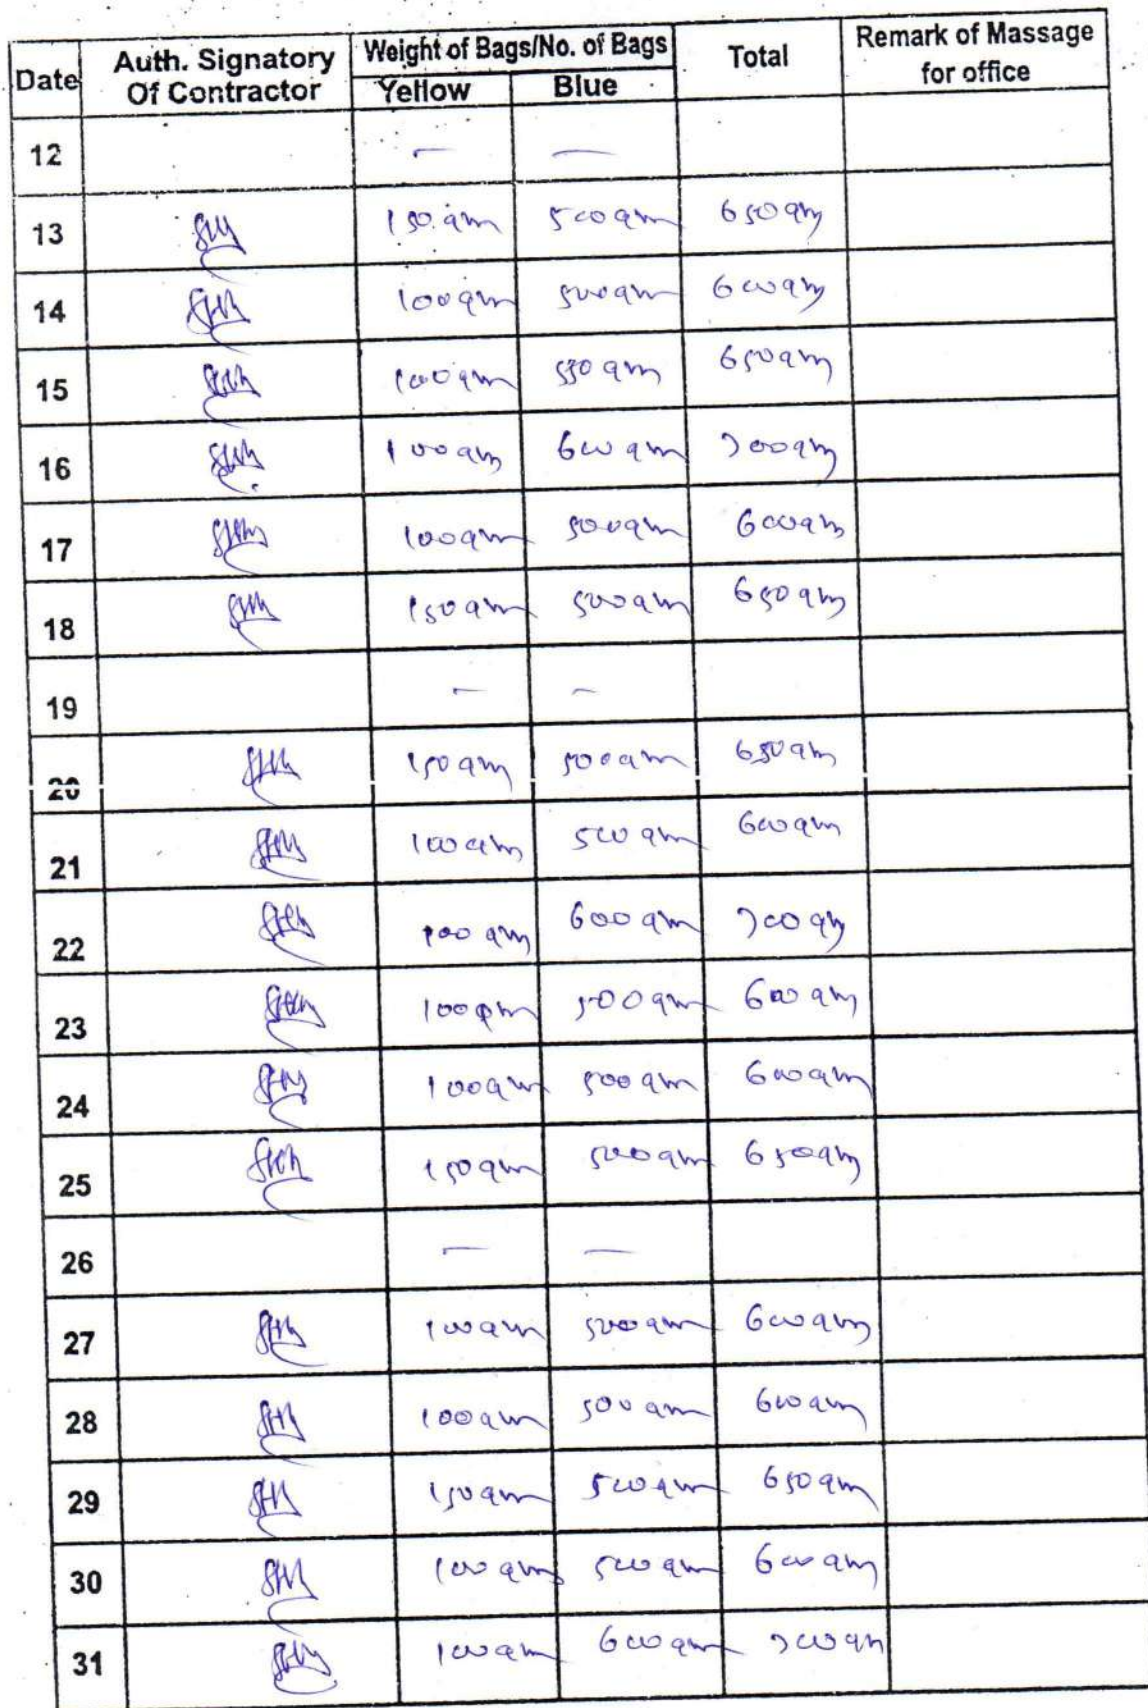 Date Auth. Signatory Of Contractor Weight of Bags/No. of Bags Yellow Blue Total Remark of Massage for office
12 — —
13 150 gm 500 gm 650 gm
14 100 gm 500 gm 600 gm
15 100 gm 550 gm 650 gm
16 100 gm 600 gm 700 gm
17 100 gm 500 gm 600 gm
18 150 gm 500 gm 650 gm
19 — —
20 150 gm 500 gm 650 gm
21 100 gm 500 gm 600 gm
22 100 gm 600 gm 700 gm
23 100 gm 500 gm 600 gm
24 100 gm 500 gm 600 gm
25 150 gm 500 gm 650 gm
26 — —
27 100 gm 500 gm 600 gm
28 100 gm 500 gm 600 gm
29 150 gm 500 gm 650 gm
30 100 gm 500 gm 600 gm
31 100 gm 600 gm 700 gm